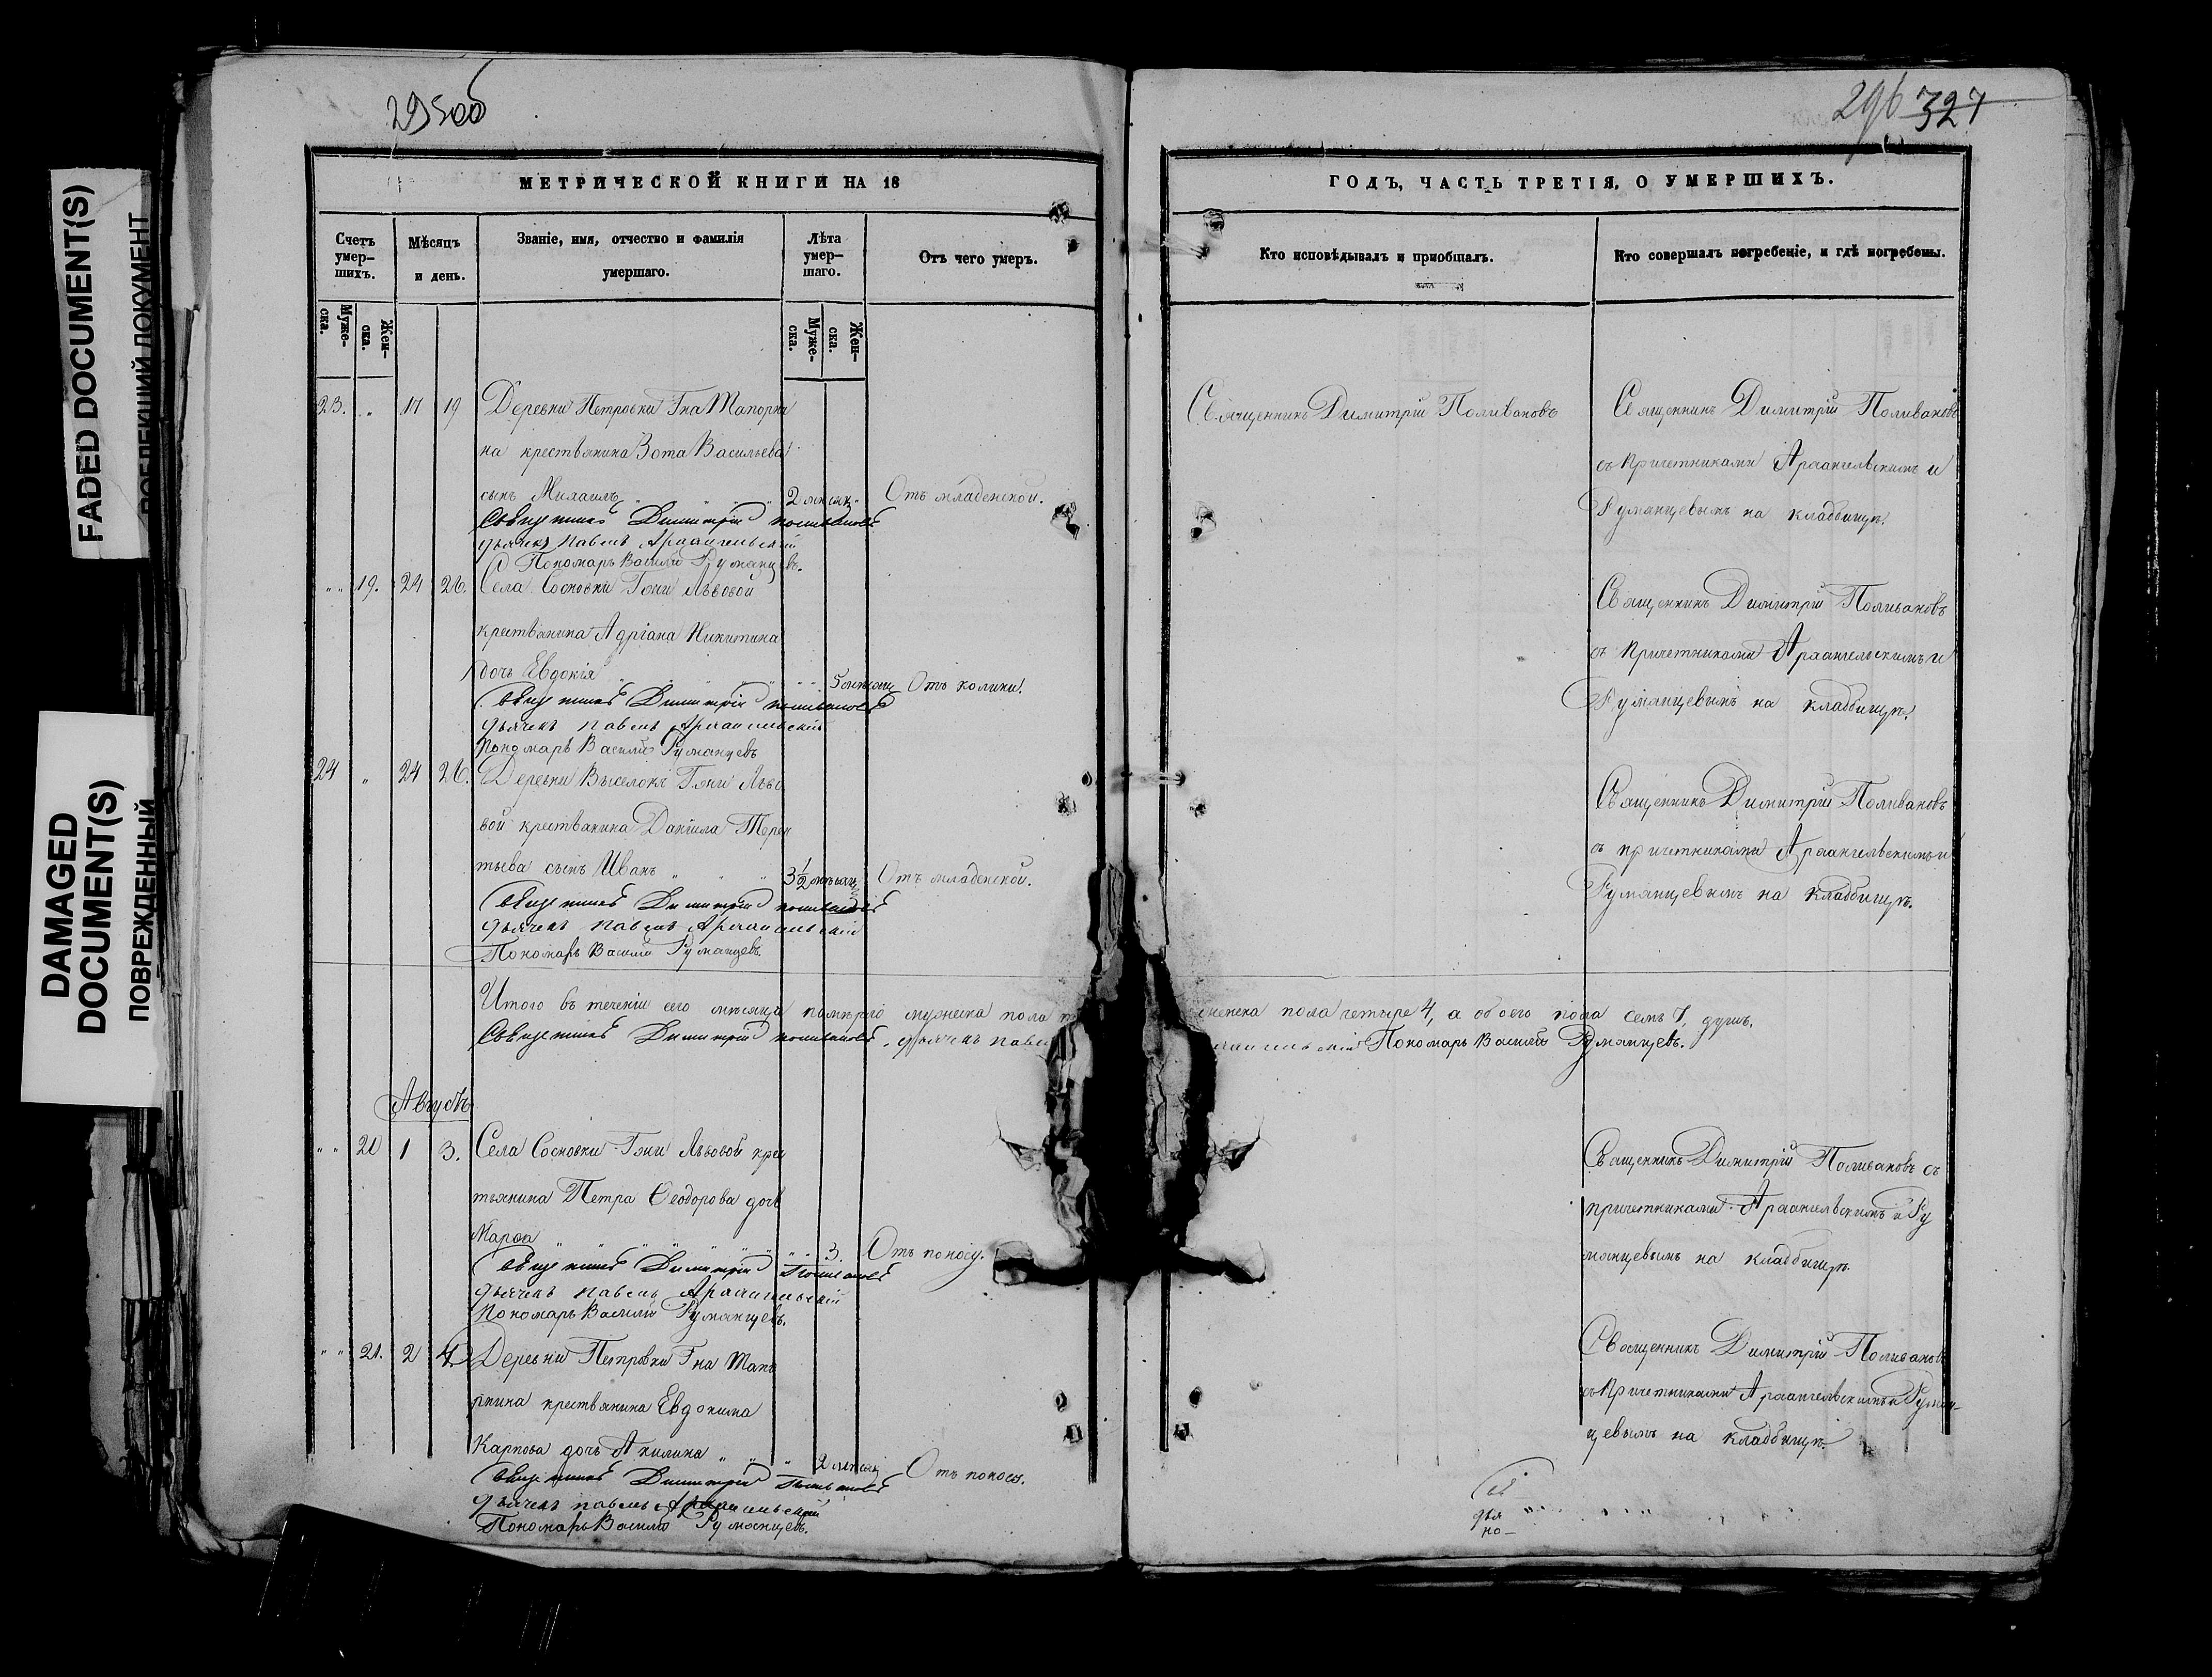 295об
296 327
FADED DOCUMENT(S)
ДОКУМЕНТ
DAMAGED
DOCUMENT(S)
ПОВРЕЖДЕННЫЙ
МЕТРИЧЕСКОЙ КНИГИ НА 18
Счетъ умер-шихъ.
Мѣсяцъ и день.
Званіе, имя, отчество и фамилія умершаго.
Лѣта умер-шаго.
Отъ чего умеръ.
Муже-ска.
Жен-ска.
Муже-ска.
Жен-ска.
23. " 17 19 Деревни Петровки Гна Тапорки
на крестьянина Зота Васильева
сынъ Михаилъ 2 мѣсяц. Отъ младенской.
Священникъ Димитрій Поливановъ
дьячекъ Павелъ Архангельскій
Пономарь Василій Румянцевъ.
" " 19. 24 26. Села Сосновки Гжи Львовой
крестьянина Адріана Никитина
дочь Евдокія 5 мѣсяц Отъ колики.
Священникъ Димитрій Поливановъ
дьячекъ Павелъ Архангельскій
Пономарь Василій Румянцевъ
24 " 24 26. Деревни Выселокъ Гжи Льво
вой крестьянина Даніила Терен
тьева сынъ Иванъ 3½ мѣсяц Отъ младенской.
Священникъ Димитрій Поливановъ
дьячекъ Павелъ Архангельскій
Пономарь Василій Румянцевъ.
Итого въ теченіи сего мѣсяца померло мужеска пола
Священникъ Димитрій Поливановъ, дьячекъ Павел
Августъ
" " 20 1 3. Села Сосновки Гжи Львовой крес
тьянина Петра Ѳеодорова дочь
Марѳа " " 3. Отъ поносу.
Священникъ Димитрій Поливановъ
дьячекъ Павелъ Архангельскій
Пономарь Василій Румянцевъ.
" " 21. 2 4 Деревни Петровки Гна Тапо
ркина крестьянина Евдокима
Карпова дочь Акилина " " " 2 мѣсяц Отъ поносу.
Священникъ Димитрій Поливановъ
дьячекъ Павелъ Архангельскій
Пономарь Василій Румянцевъ.
ГОДЪ, ЧАСТЬ ТРЕТІЯ, О УМЕРШИХЪ.
Кто исповѣдывалъ и пріобщалъ.
Кто совершалъ погребеніе, и гдѣ погребены.
Священникъ Димитрій Поливановъ
Священникъ Димитрій Поливановъ
съ причетниками Архангельскимъ и
Румянцевымъ на кладбищѣ.
Священникъ Димитрій Поливановъ
съ причетниками Архангельскимъ и
Румянцевымъ на кладбищѣ.
Священникъ Димитрій Поливановъ
съ причетниками Архангельскимъ и
Румянцевымъ на кладбищѣ.
женска пола четыре 4, а обоего пола семь 7, душъ.
Пономарь Василій Румянцевъ.
Священникъ Димитрій Поливановъ съ
причетниками Архангельскимъ и Ру
мянцевымъ на кладбищѣ.
Священникъ Димитрій Поливановъ
съ причетниками Архангельскимъ и Румян-
цевымъ на кладбищѣ.
дья
по-